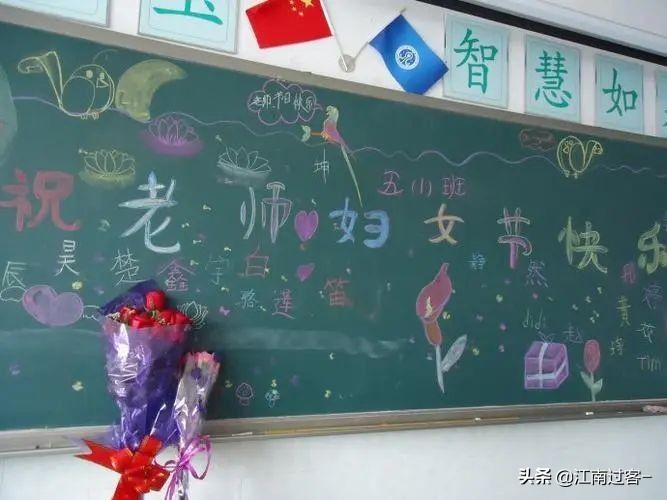 玉
智
慧
如
老师节日快乐
坤
五(1)班
祝老师妇女节快乐
辰
昊
楚
鑫
宇
白
静
然
骆
莲
笛
黄
赵
Tim
头条 @江南过客-